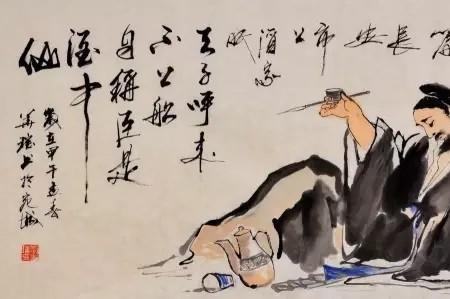 長
安
市
上
酒家
眠
天子呼來
不上船
自稱臣是
酒中
仙
歲在甲午春
書於宛城